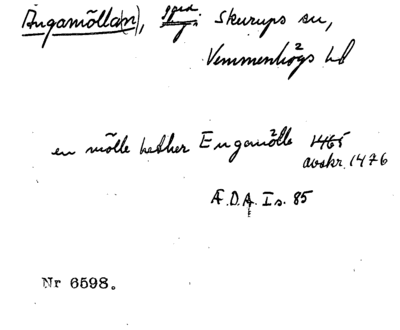 Ängamölla(n), gård. Skurups sn,
Vemmenhögs hd
en mölle hether Engemölle 1465
avskr. 1476
Æ.D.A. I s. 85
Nr 6598.